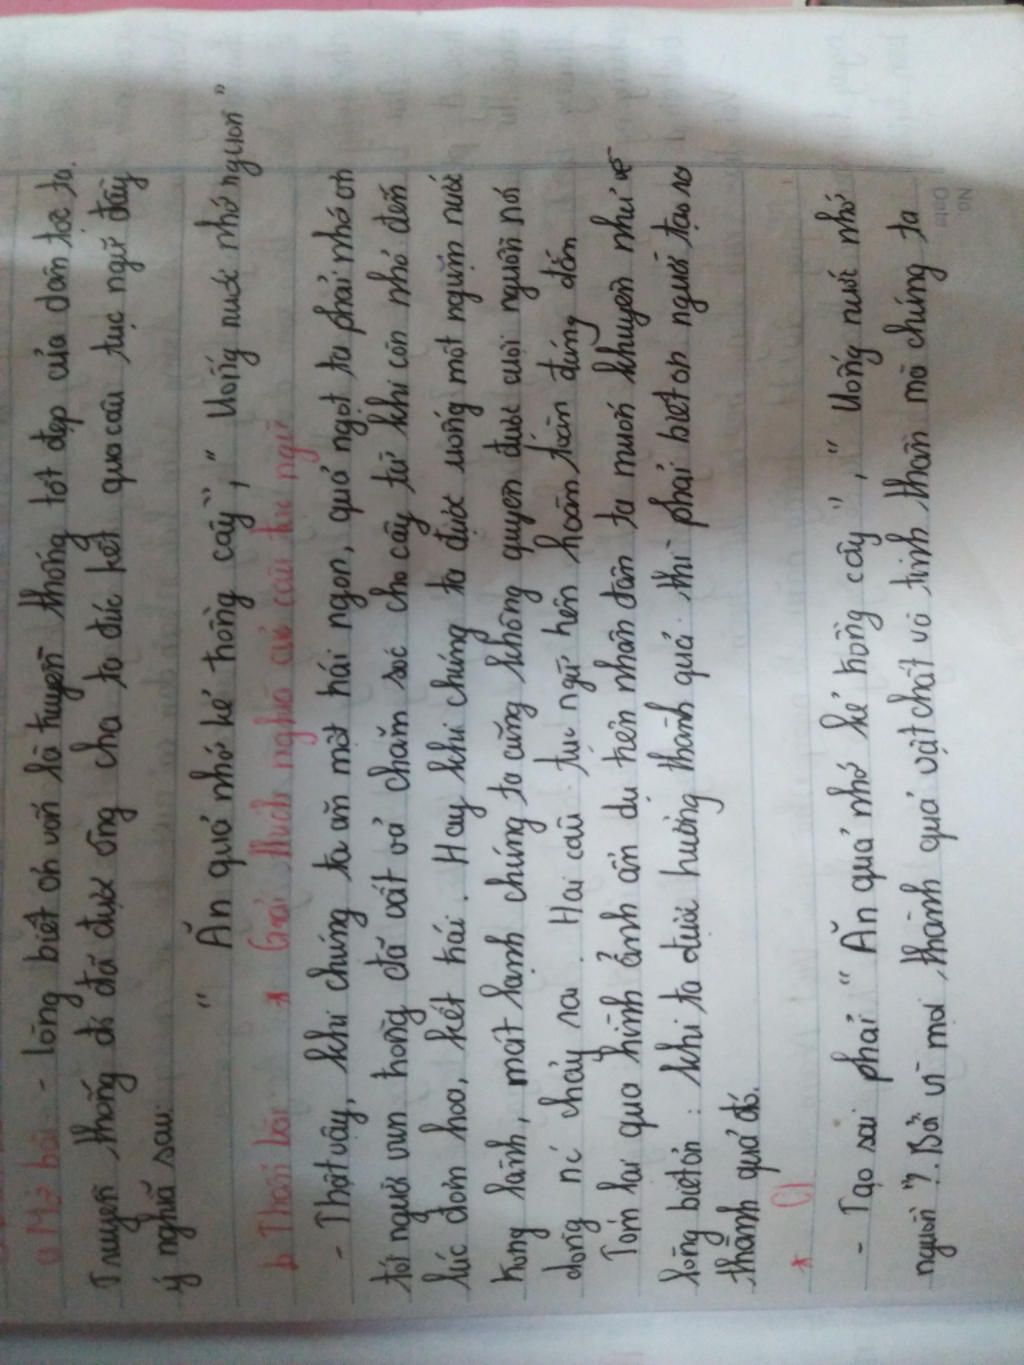 a Mở bài - Lòng biết ơn vốn là truyền thống tốt đẹp của dân tộc ta.
Truyền thống đó đã được ông cha ta đúc kết qua câu tục ngữ đầy
ý nghĩa sau:
" Ăn quả nhớ kẻ trồng cây", " Uống nước nhớ nguồn"
b Thân bài * Giải thích nghĩa của câu tục ngữ
- Thật vậy, khi chúng ta ăn một trái ngon, quả ngọt ta phải nhớ ơn
tới người vun trồng đã vất vả chăm sóc cho cây từ khi còn nhỏ đến
lúc đơm hoa, kết trái. Hay khi chúng ta được uống một ngụm nước
trong lành, mát lạnh chúng ta cũng không quyên được cuội nguồn nơi
dòng nc chảy ra. Hai câu tục ngữ trên hoàn toàn đúng đắn
Tóm lại qua hình ảnh ẩn dụ trên nhân dân ta muốn khuyên nhủ về
lòng biết ơn: khi ta được hưởng thành quả thì phải biết ơn người tạo ra
thành quả đó.
* C1
- Tạo sai phải " Ăn quả nhớ kẻ trồng cây", " Uống nước nhớ
nguồn"? Bởi vì mọi thành quả vật chất và tinh thần mà chúng ta
No.
Date